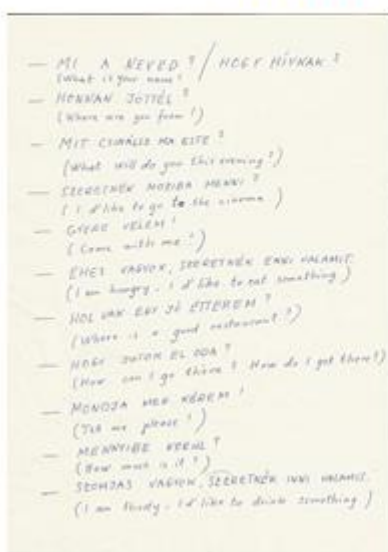 — MI A NEVED? / HOGY HÍVNAK?
(What is your name?
— HONNAN JÖTTÉL?
(Where are you from?)
— MIT CSINÁLSZ MA ESTE?
(What will do you this evening?)
— SZERETNÉK MOZIBA MENNI?
(I'd like to go to the cinema)
— GYERE VELEM!
(Come with me!)
— ÉHES VAGYOK, SZERETNÉK ENNI VALAMIT.
(I am hungry. I'd like to eat something)
— HOL VAN EGY JÓ ÉTTEREM?
(Where is a good restaurant?)
— HOGY JUTOK EL ODA?
(How can I go there? How do I get there?)
— MONDJA MEG KÉREM!
(Tell me please!)
— MENNYIBE KERÜL?
(How much is it?)
— SZOMJAS VAGYOK, SZERETNÉK INNI VALAMIT.
(I am thirsty. I'd like to drink something)